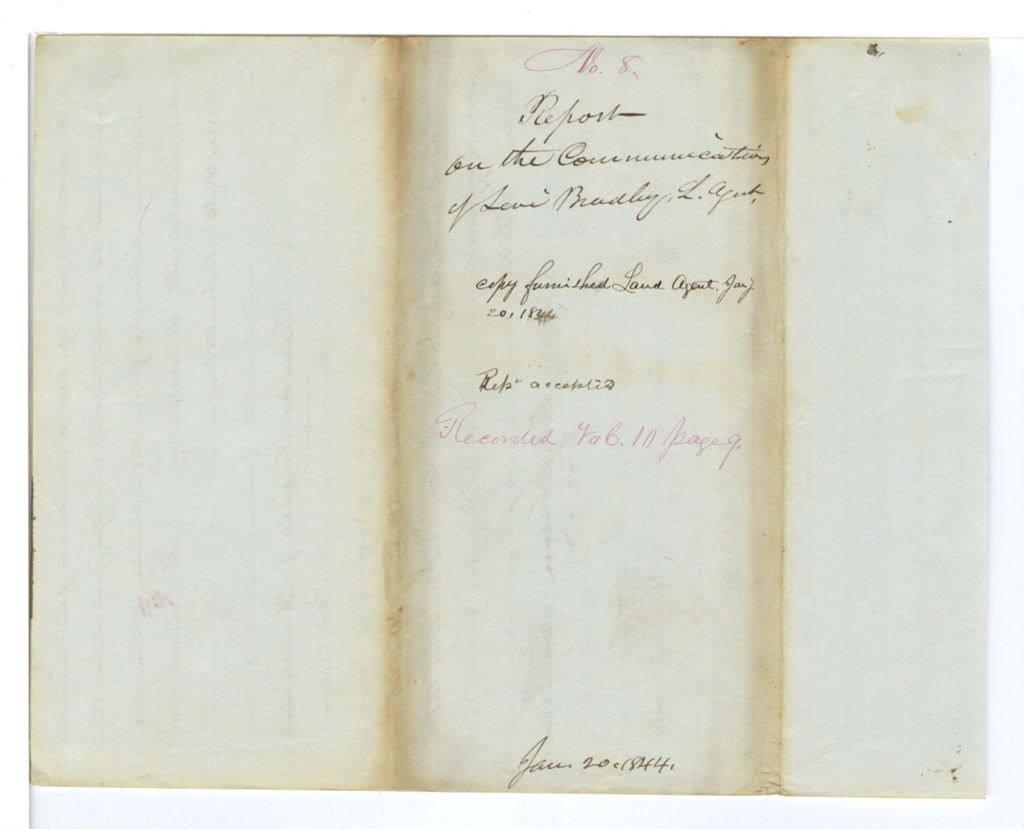 No. 8.
Report
on the Communication
of Levi Bradley, L. Agent,
copy furnished Land Agent. Jany.
20, 1844
Rept accepted
Recorded Vol. 111 page 9.
Jan. 20. 1844.